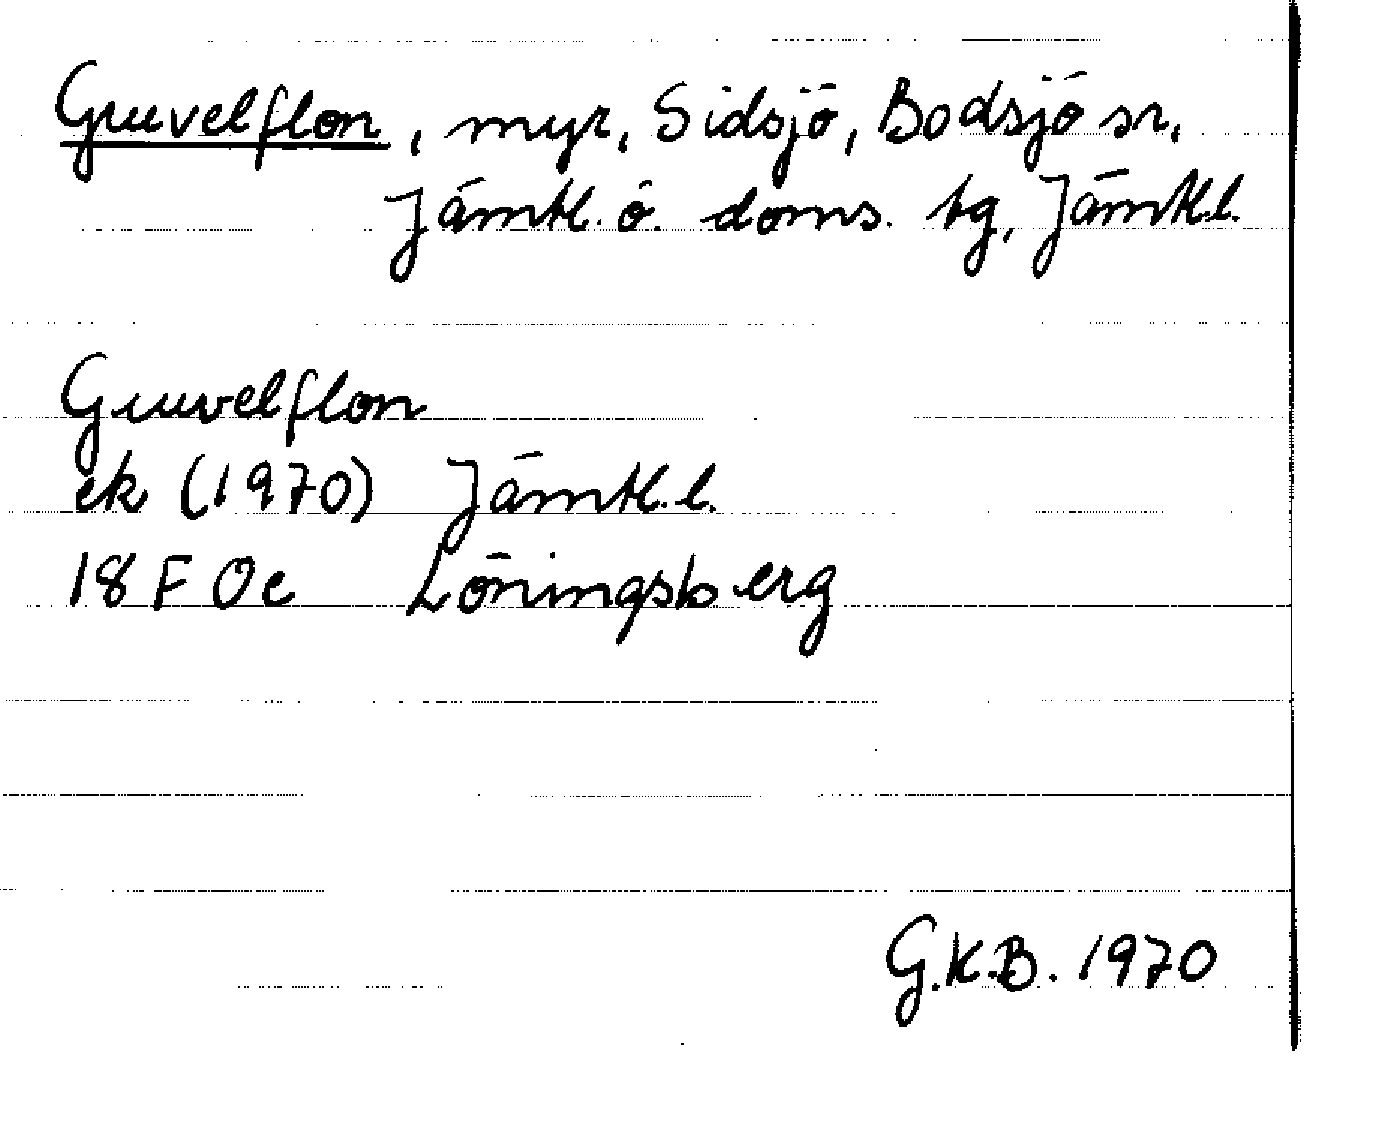 Gruvelflon, myr, Sidsjö, Bodsjö sn,
Jämtl. ö. doms. tg, Jämtl.l.
Gruvelflon
ek (1970) Jämtl.l.
18 F Oe Löningsberg
G.K.B. 1970